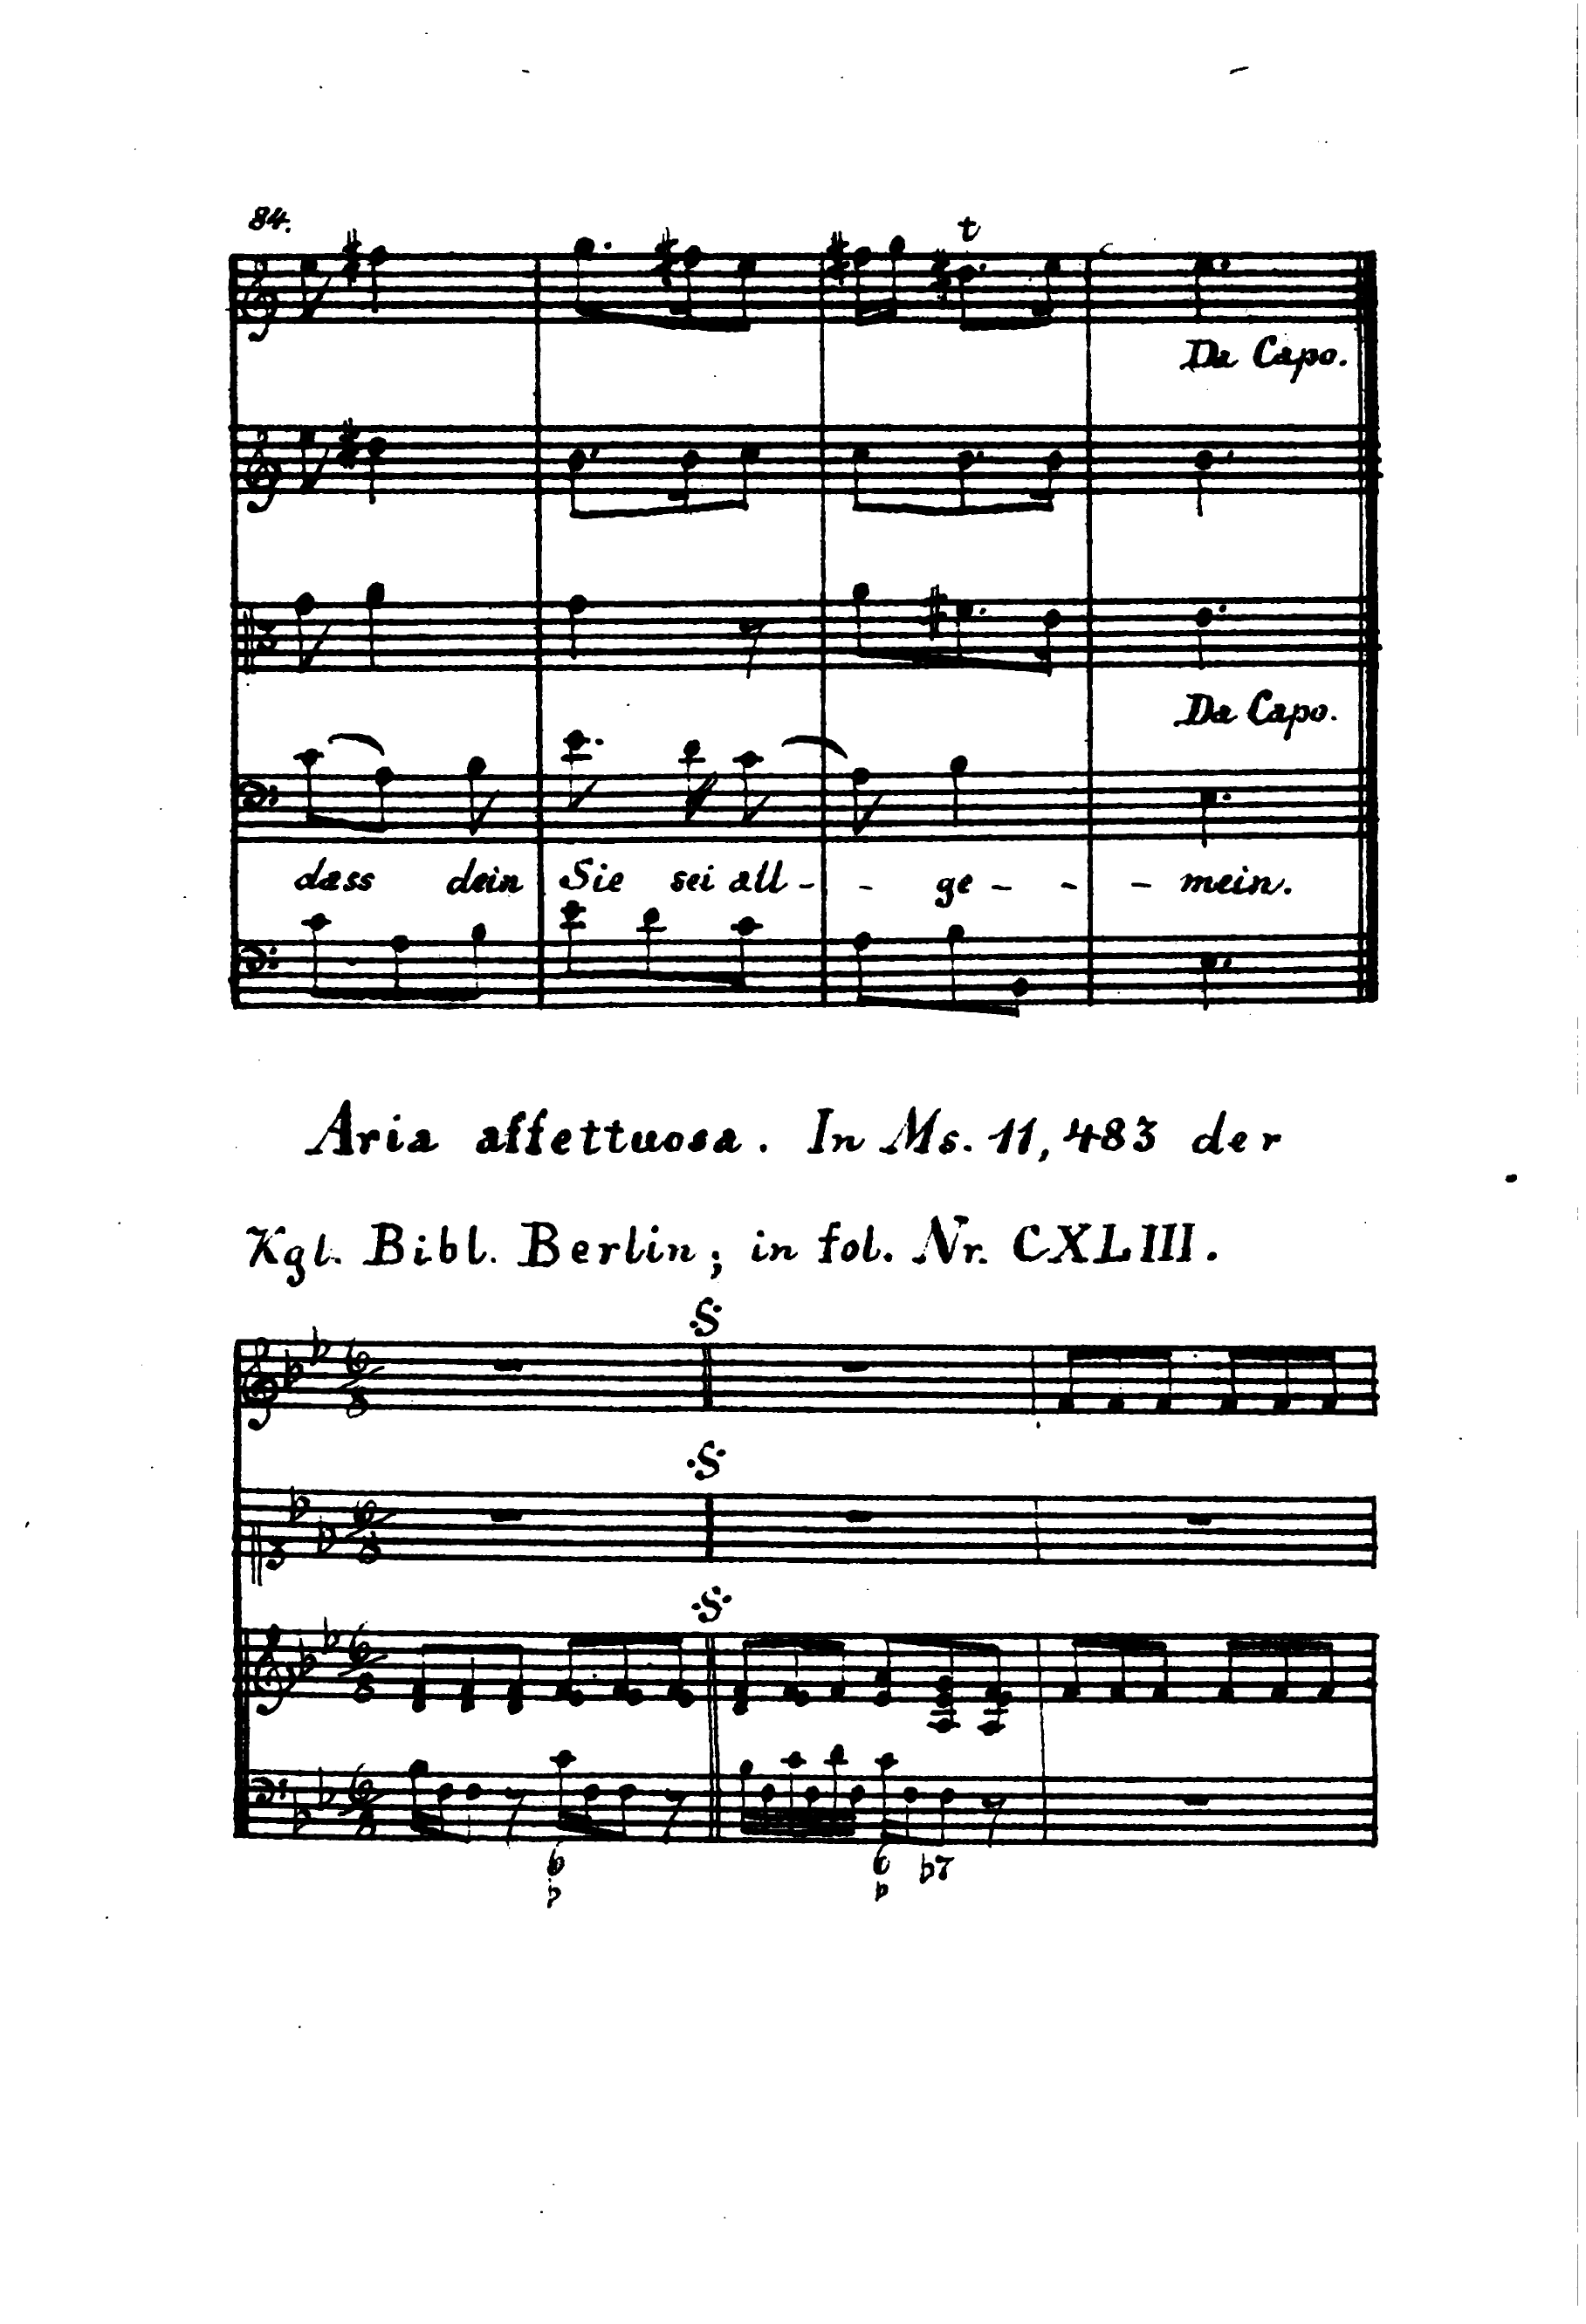 84.
t
Da Capo.
Da Capo.
dass dein Sie sei all - - ge - - - mein.
Aria affettuosa. In Ms. 11,483 der
Kgl. Bibl. Berlin; in fol. Nr. CXLIII.
·S·
6/8
·S·
6/8
·S·
6/8
6/8
6 6 ♭7
♭ ♭